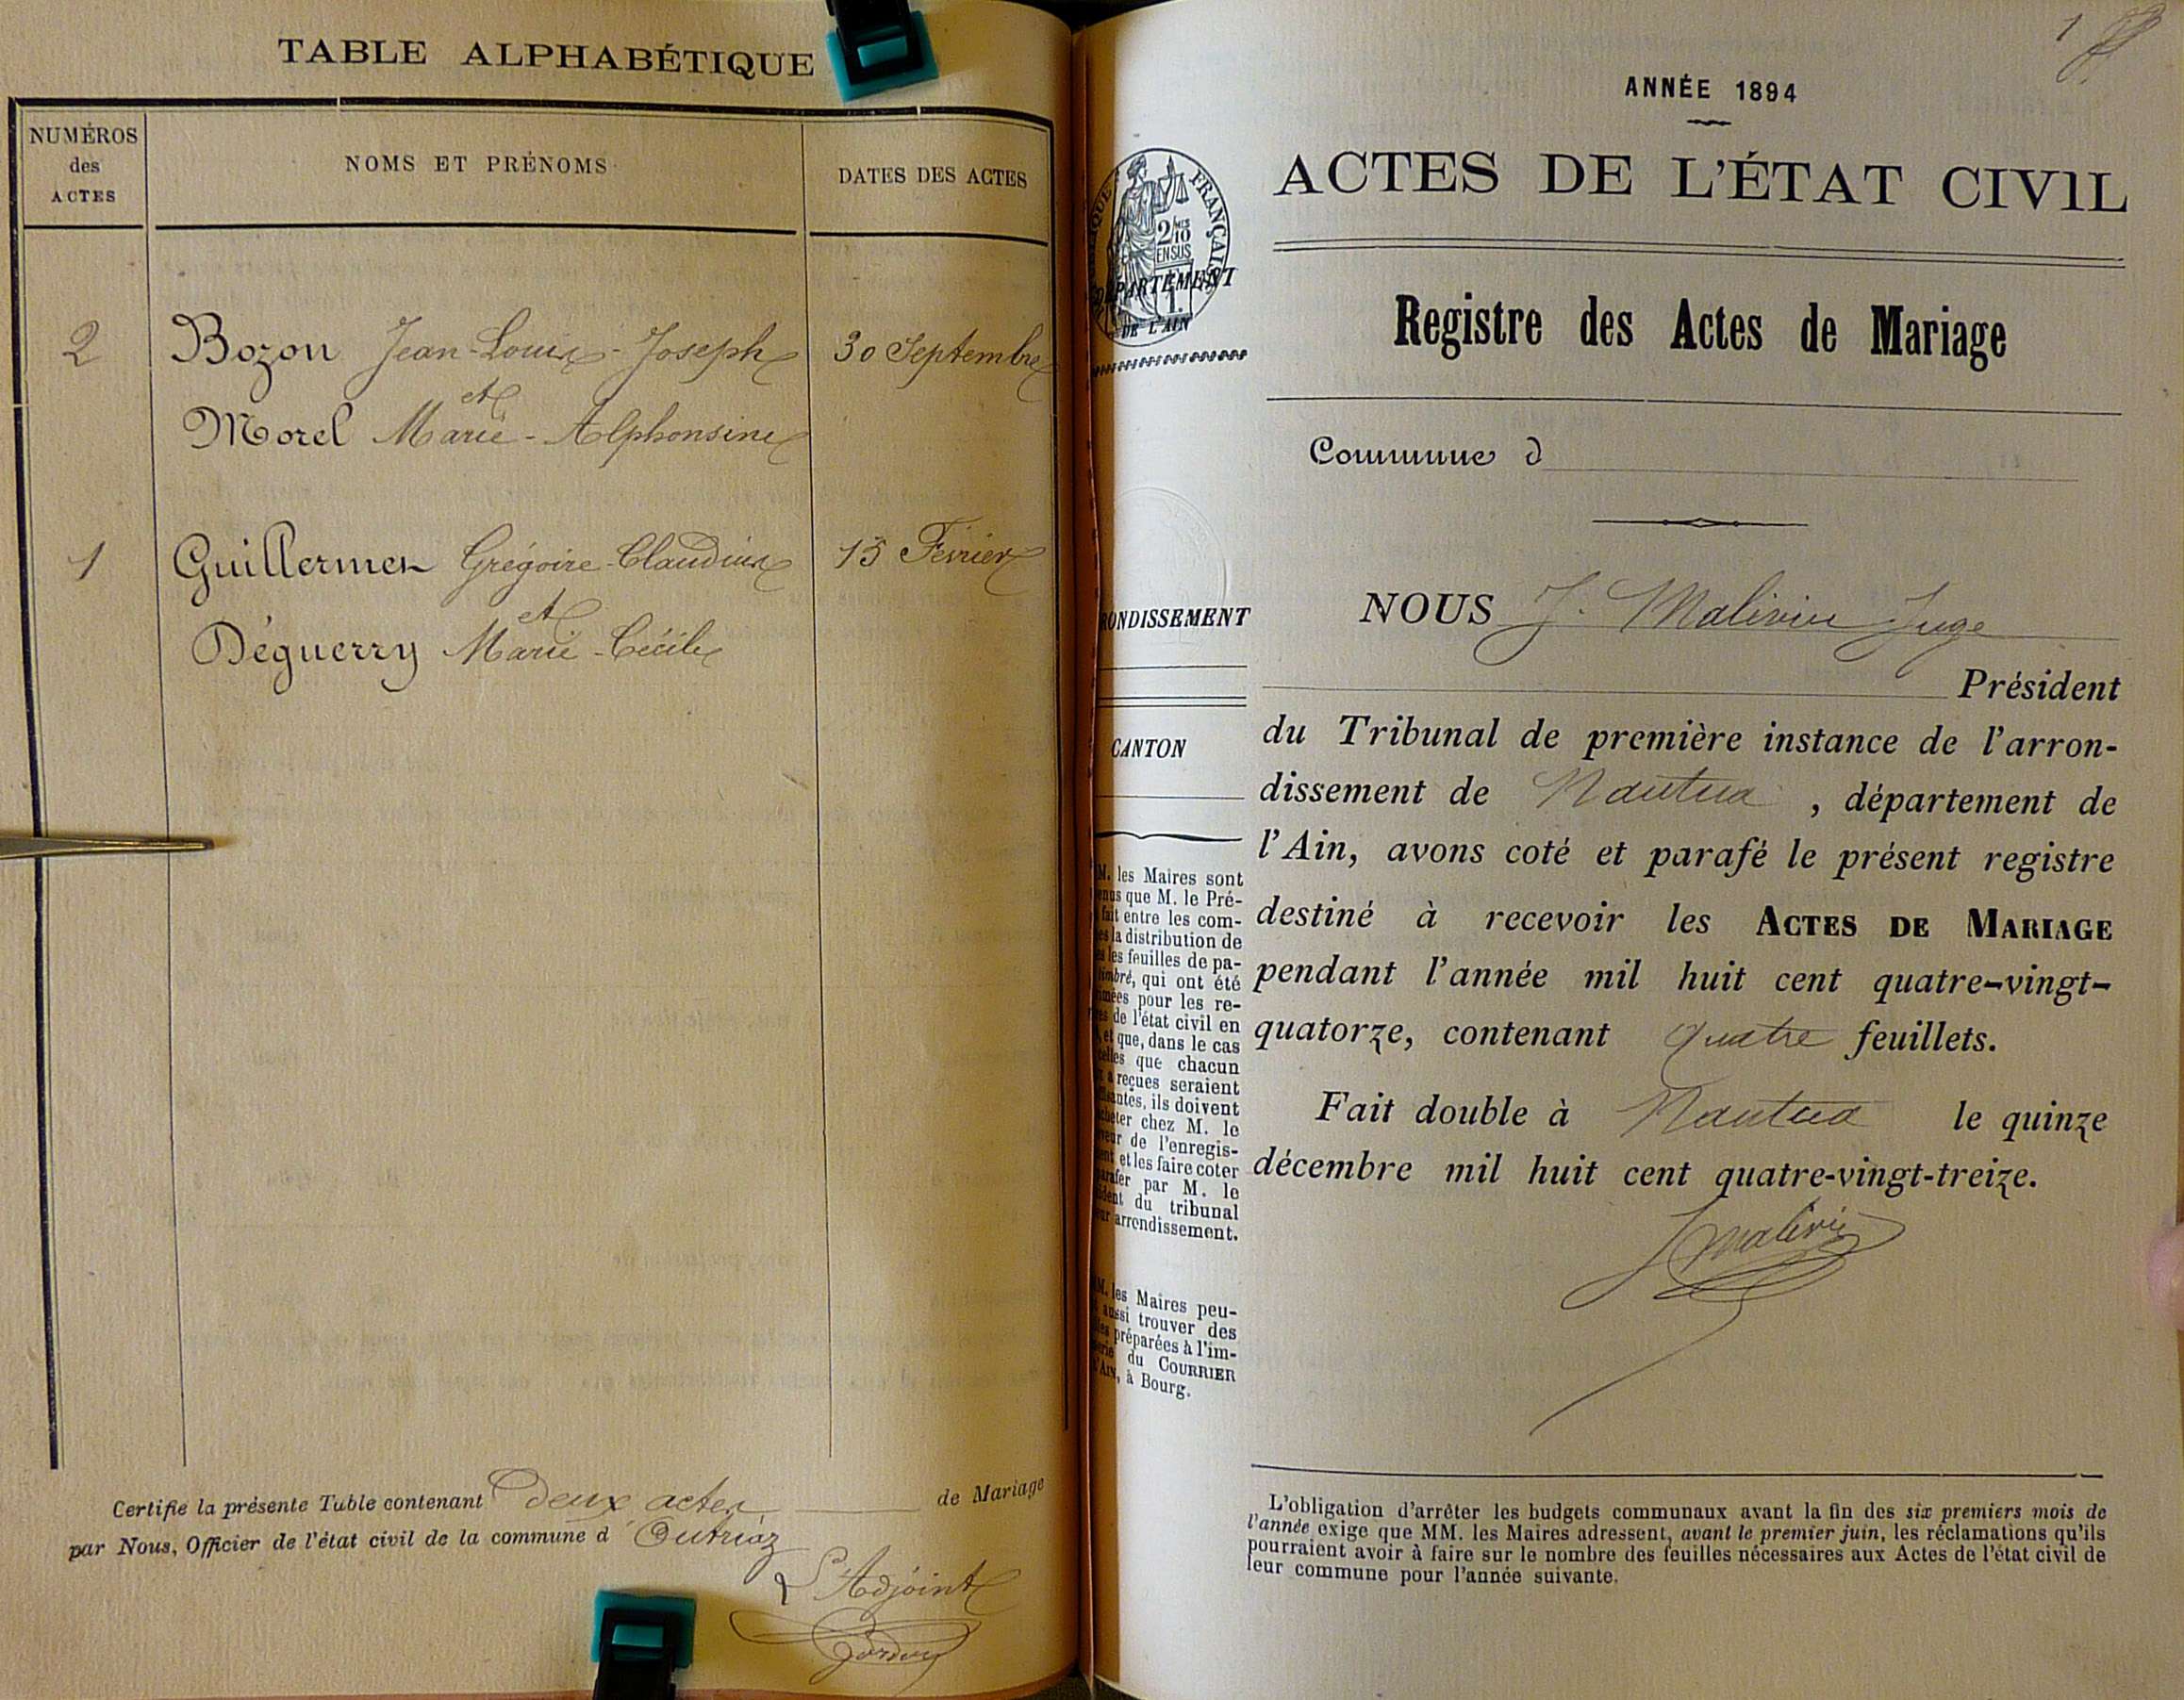 TABLE ALPHABÉTIQUE
NUMÉROS
des
ACTES
NOMS ET PRÉNOMS
DATES DES ACTES
2 Bozon Jean-Louis-Joseph 30 Septembre
et
Morel Marie-Alphonsine
1 Guillermet Grégoire-Claudius 15 Fevrier
et
Déguerry Marie-Cécile
Certifie la présente Table contenant deux actes de Mariage
par Nous, Officier de l'état civil de la commune d'Outriaz
L'Adjoint
1
ANNÉE 1894
ACTES DE L'ÉTAT CIVIL
FRANÇAISE
2/10
EN SUS
DÉPARTEMENT
DE L'AIN
Registre des Actes de Mariage
Commune d
NOUS J. Malivin Juge
Président
du Tribunal de première instance de l'arron-
dissement de Nantua, département de
l'Ain, avons coté et parafé le présent registre
destiné à recevoir les ACTES DE MARIAGE
pendant l'année mil huit cent quatre-vingt-
quatorze, contenant quatre feuillets.
Fait double à Nantua le quinze
décembre mil huit cent quatre-vingt-treize.
JMalivin
RONDISSEMENT
CANTON
M. les Maires sont
que M. le Pré-
fait entre les com-
la distribution de
les feuilles de pa-
, qui ont été
pour les re-
de l'état civil en
et que, dans le cas
celles que chacun
a reçues seraient
, ils doivent
chez M. le
de l'enregis-
et les faire coter
par M. le
du tribunal
arrondissement.
M. les Maires peu-
aussi trouver des
préparées à l'im-
du COURRIER
, à Bourg.
L'obligation d'arrêter les budgets communaux avant la fin des six premiers mois de
l'année exige que MM. les Maires adressent, avant le premier juin, les réclamations qu'ils
pourraient avoir à faire sur le nombre des feuilles nécessaires aux Actes de l'état civil de
leur commune pour l'année suivante.